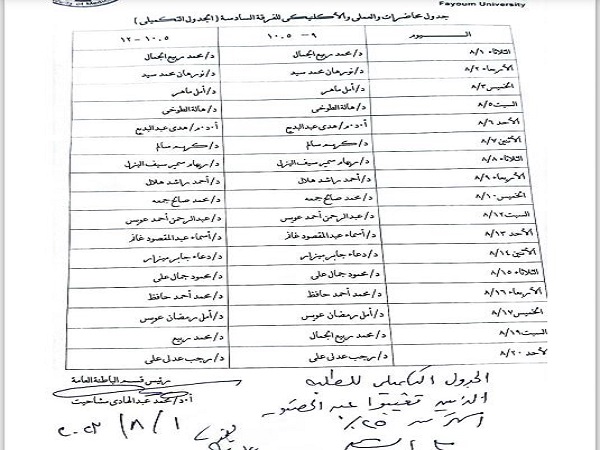 Fayoum University
جدول محاضرات والعملى والأكلينيكى للفرقة السادسة ( الجدول التكميلى )
اليــــوم ٩ – ١٠.٥ ١٠.٥ – ١٢
الثلاثاء ٨/١ د/ محمد ربيع الجمال د/ محمد ربيع الجمال
الأربعاء ٨/٢ د/ نورهان محمد سيد د/ نورهان محمد سيد
الخميس ٨/٣ د/ أمل ماهر د/ أمل ماهر
السبت ٨/٥ د/ هالة الطوخى د/ هالة الطوخى
الأحد ٨/٦ أ.د.م/ هدى عبد البديع أ.د.م/ هدى عبد البديع
الأثنين ٨/٧ د/ كريم سالم د/ كريم سالم
الثلاثاء ٨/٨ د/ ريهام سمير سيف اليزل د/ ريهام سمير سيف اليزل
الأربعاء ٨/٩ د/ أحمد راشد هلال د/ أحمد راشد هلال
الخميس ٨/١٠ د/ محمد صالح جمعه د/ محمد صالح جمعه
السبت ٨/١٢ د/ عبد الرحمن أحمد عويس د/ عبد الرحمن أحمد عويس
الأحد ٨/١٣ د/ أسماء عبد المقصود غافر د/ أسماء عبد المقصود غافر
الأثنين ٨/١٤ د/ دعاء جابر ميزار د/ دعاء جابر ميزار
الثلاثاء ٨/١٥ د/ محمود جمال على د/ محمود جمال على
الأربعاء ٨/١٦ د/ محمد أحمد حافظ د/ محمد أحمد حافظ
الخميس ٨/١٧ د/ أمل رمضان عويس د/ أمل رمضان عويس
السبت ٨/١٩ د/ محمد ربيع الجمال د/ محمد ربيع
الأحد ٨/٢٠ د/ رجب عدلى على د/ رجب عدلى على
رئيس قسم الباطنة العامة
أ.د/ محمد عبد الهادى شاحيت
الجدول التكميلى للطلبه
الذين تغيبوا عن الحضور
اكثر من ٢٥٪
٢٠٢٣/٨/١